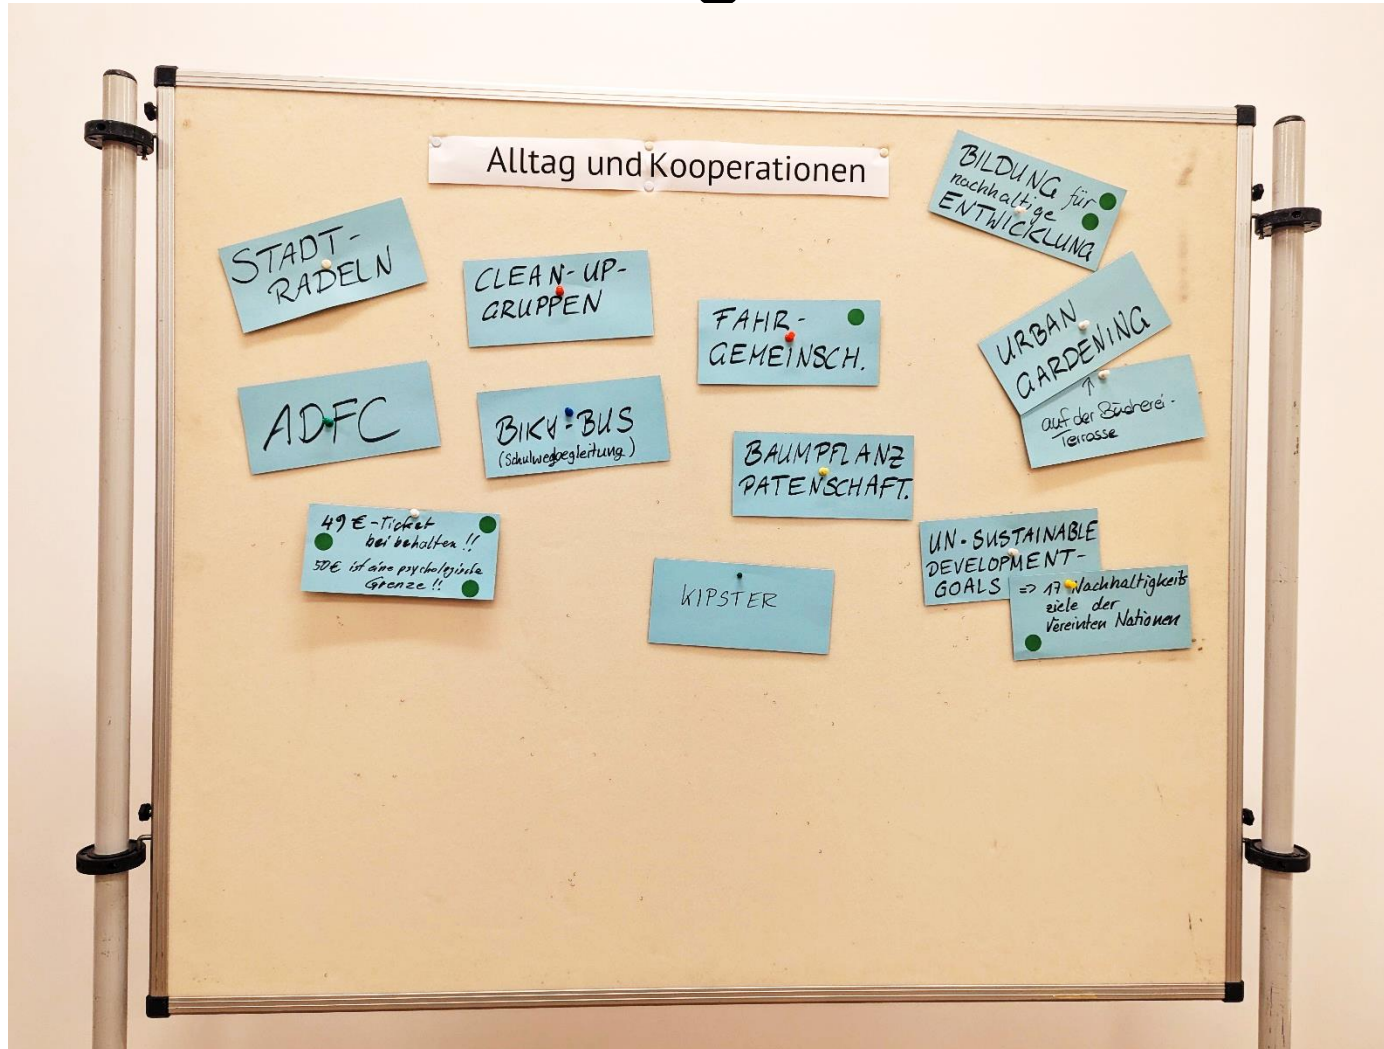 Alltag und Kooperationen
STADT-
RADELN
CLEAN-UP-
GRUPPEN
FAHR-
GEMEINSCH.
BILDUNG für
nachhaltige
ENTWICKLUNG
URBAN
GARDENING
↑
auf der Bücherei-
Terrasse
ADFC
BIKE-BUS
(Schulwegbegleitung)
BAUMPFLANZ
PATENSCHAFT.
49 €-Ticket
bei behalten !!
50€ ist eine psychologische
Grenze !!
KIPSTER
UN-SUSTAINABLE
DEVELOPMENT-
GOALS
=> 17 Nachhaltigkeits
ziele der
Vereinten Nationen